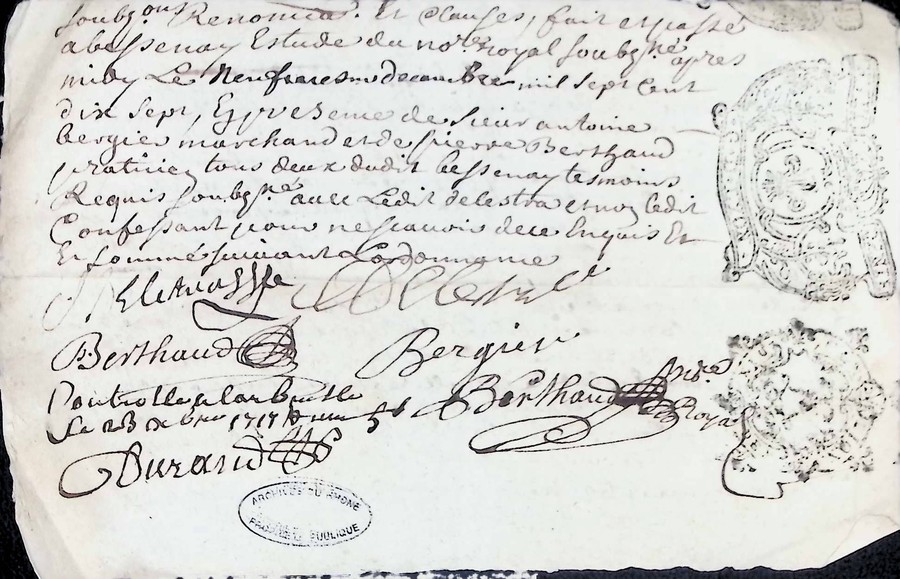 soubz.ons Renoncia.n Et clauses, fait et passé
a bessenay Estude du no.re Royal soubz.né apres
midy Le neuf decembre mil sept cent
dix sept, En presence de sieur antoine
bergier marchand et de pierre Berthaud
praticien tous deux dudit bessenay tesmoins
Requis soubz.nés avec Ledit delestra et non ledit
Confessant pour ne scavoir de ce Enquis Et
Et sommé suivant Lordonnance
Berthaud Bergier
Controllé a larbresle
Le 23 xbre 1717
Berthaud no.re Royal
Durand
ARCHIVES DU RHONE
PROPRIÉTÉ PUBLIQUE